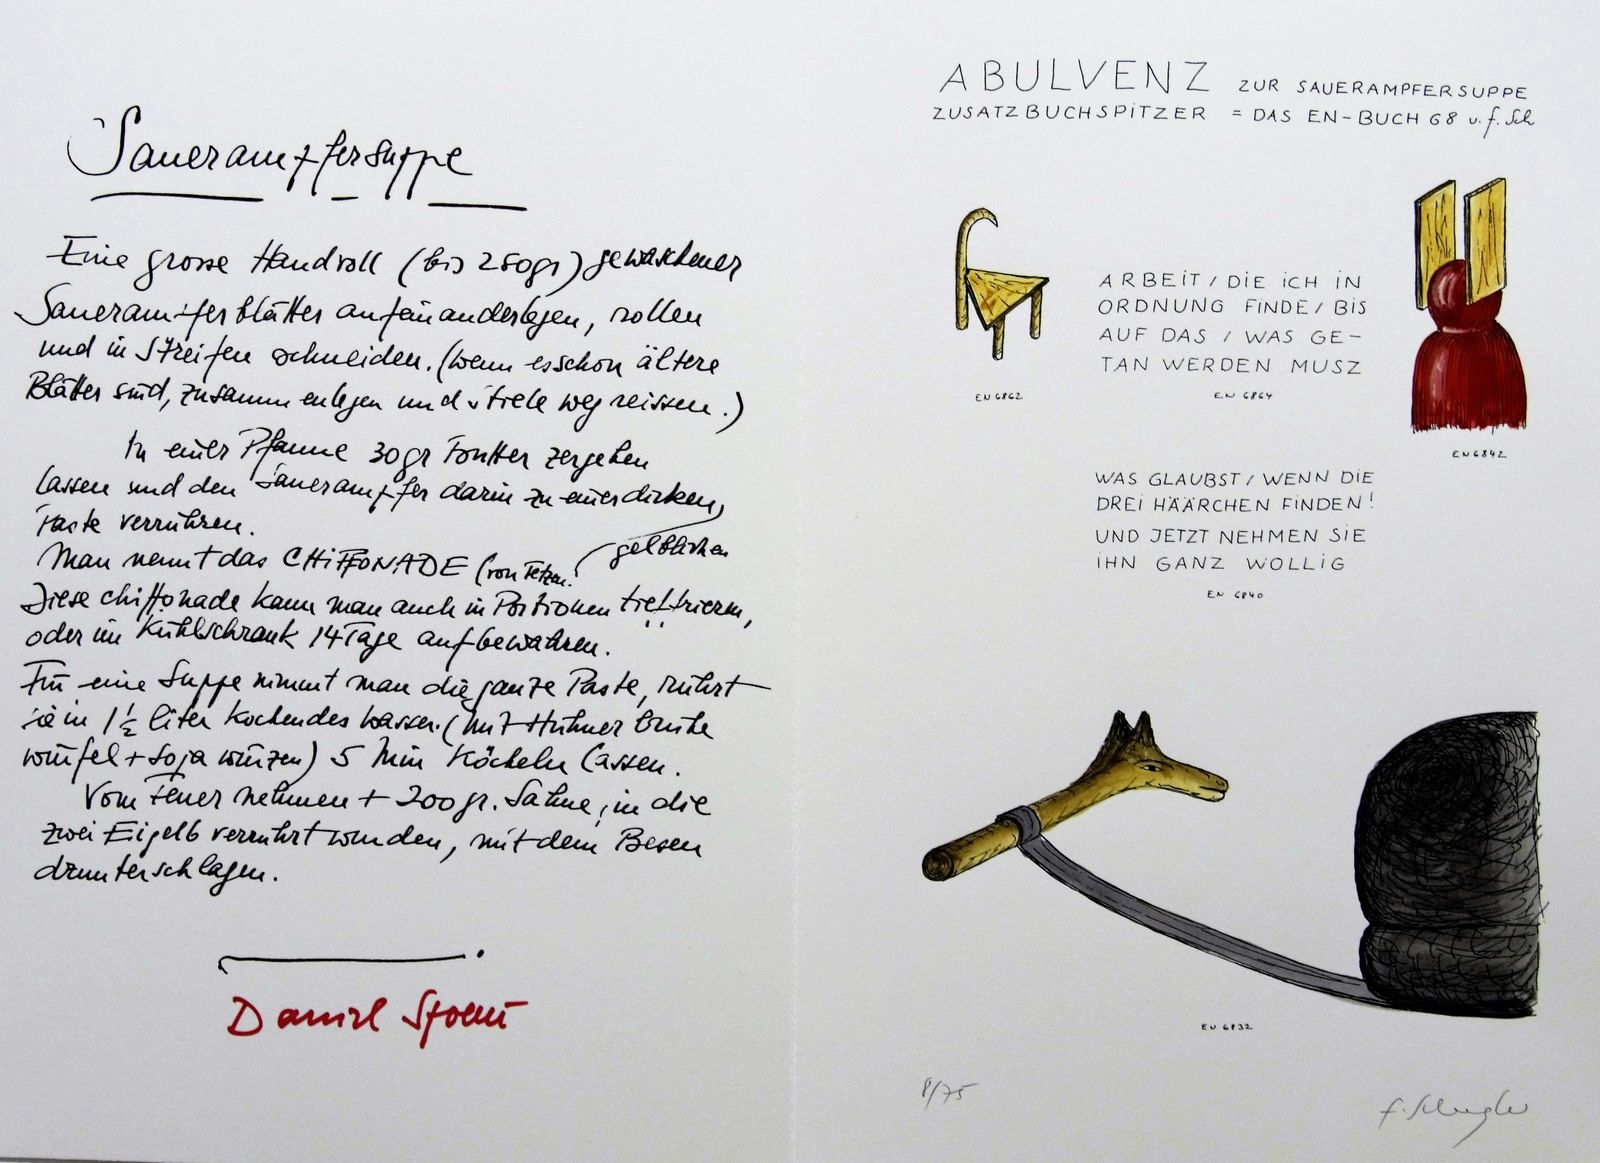 Sauerampfersuppe
Eine grosse Handvoll (bis 250gr) gewaschener
Sauerampferblätter aufeinanderlegen, rollen
und in Streifen schneiden. (wenn es schon ältere
Blätter sind, zusammenlegen und Stiele wegreissen.)
In einer Pfanne 30gr Butter zergehen
lassen und den Sauerampfer darin zu einer dicken,
gelblichen
Paste verrühren.
Man nennt das CHIFFONADE (von Fetzen.
Diese chiffonade kann man auch in Portionen tieffrieren,
oder im Kühlschrank 14 Tage aufbewahren.
Für eine Suppe nimmt man die ganze Paste, rührt
sie in 1 1/2 liter kochendes Wasser. (mit Hühnerbrühe
würfel + Soja würzen) 5 Min köcheln lassen.
Vom Feuer nehmen + 200gr. Sahne, in die
zwei Eigelb verrührt wurden, mit dem Besen
drunterschlagen.
Daniel Spoerri
ABULVENZ ZUR SAUERAMPFERSUPPE
ZUSATZBUCHSPITZER = DAS EN-BUCH 68 v. f. Sch
ARBEIT / DIE ICH IN
ORDNUNG FINDE / BIS
AUF DAS / WAS GE-
TAN WERDEN MUSZ
EN 6862
EN 6864
EN 6842
WAS GLAUBST / WENN DIE
DREI HÄÄRCHEN FINDEN!
UND JETZT NEHMEN SIE
IHN GANZ WOLLIG
EN 6840
EN 6832
8/75